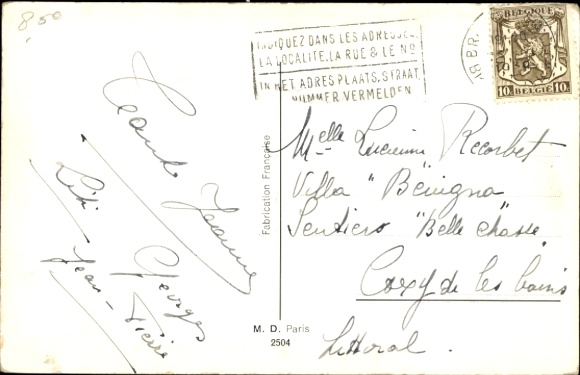 8,50
INDIQUEZ DANS LES ADRESSES
LA LOCALITE, LA RUE & LE No
IN HET ADRES PLAATS, STRAAT
NUMMER VERMELDEN
BELGIQUE
10c 10c
BELGIË
Jeanne
Georges
Lili
Jean-Pierre
Fabrication Française
M. D. Paris
2504
Melle Lucienne Recorbet
Villa "Benigna"
Sentiers "Belle chasse"
Coxy de les bains
Littoral.